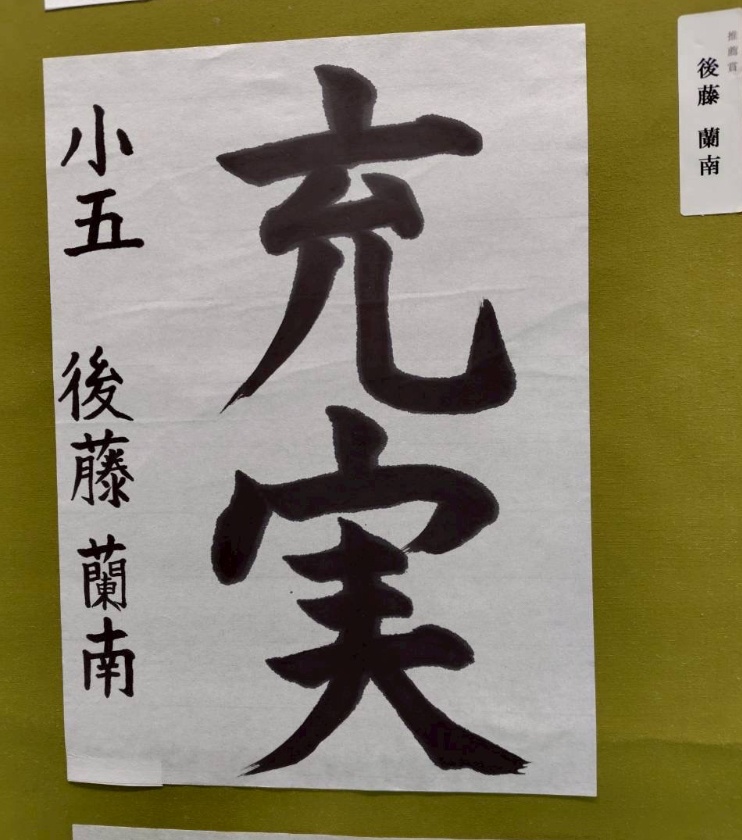 推薦賞
後藤 蘭南
充実
小五 後藤 蘭南